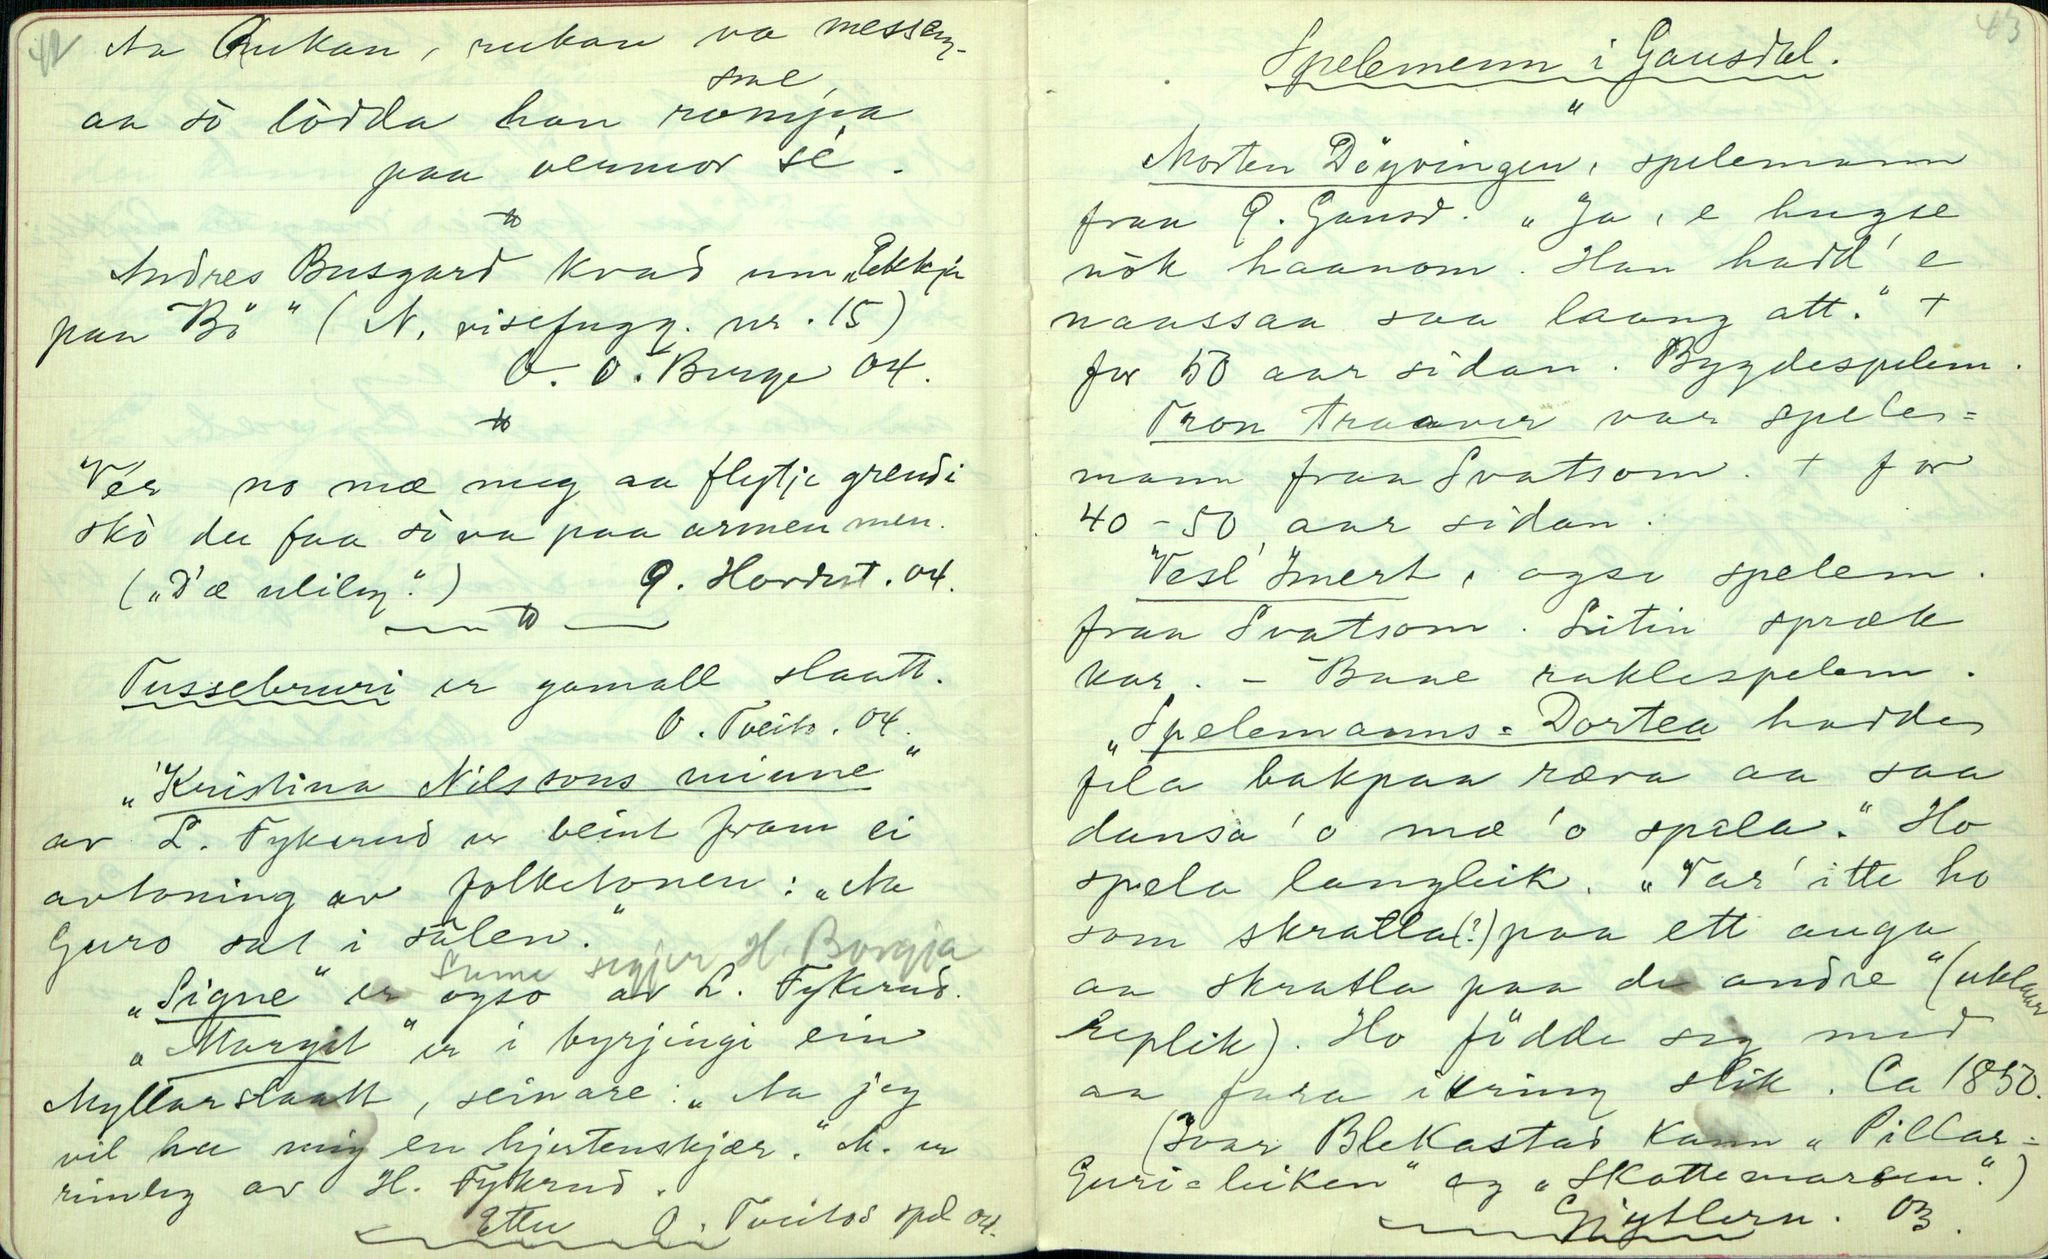 42
Aa Rukan, rukan va messom-
sme,
aa sò lödda han rompa
paa vermor sé.
Andres Busgard kvad um „Ekkja
paa Bö" (N. visefugg. nr. 15)
O. O. Berge 04.
Ver no mæ meg aa flytje grendi
skò du faa sòva paa armen men.
(„D'æ ulileg".) Q. Hovdest. 04.
Tussebruri er gamall slaatt.
O. Tveito. 04.
„Kristina Nilssons minne"
av L. Fykerud er beint fram ei
avtoning av folketonen: „Aa
Guro sat i salen."
Sume segjer H. Borgja
„Signe" er ogso av L. Fykerud.
„Margit" er i byrjingi ein
Myllarslaatt, seinare: „Aa jeg
vil ha mig en hjertenskjær." M. er
rimleg av H. Fykerud.
Etter O. Tveitos spel 04.
43
Spelemenn i Gausdal.
Morten Döyvingen, spelemann
fraa Ö. Gausd. „Ja, e hugse
nòk haanom. Han hadd' e
naassaa saa laang att." +
for 50 aar sidan. Bygdespelem.
Tron Traaver var spele=
mann fraa Svatsom. + for
40-50 aar sidan.
Vesl' Imert, ogso spelem.
fraa Svatsom. Litin spræk
kar. - Bane raklespelem.
„Spelemanns=Dortea hadde
fela bakpaa ræva aa saa
dansa 'o mæ 'o spela." Ho
spela langleik. „Var' itte ho
som skratla(?) paa ett auga
aa skratla paa de andre" (uklaar
replik). Ho födde seg med
aa fara ikring slik. Ca 1850.
(Ivar Blekastad kann „Pillar=
Guri=leiken" og „Skottemarsen".)
Gjytlern. 03.